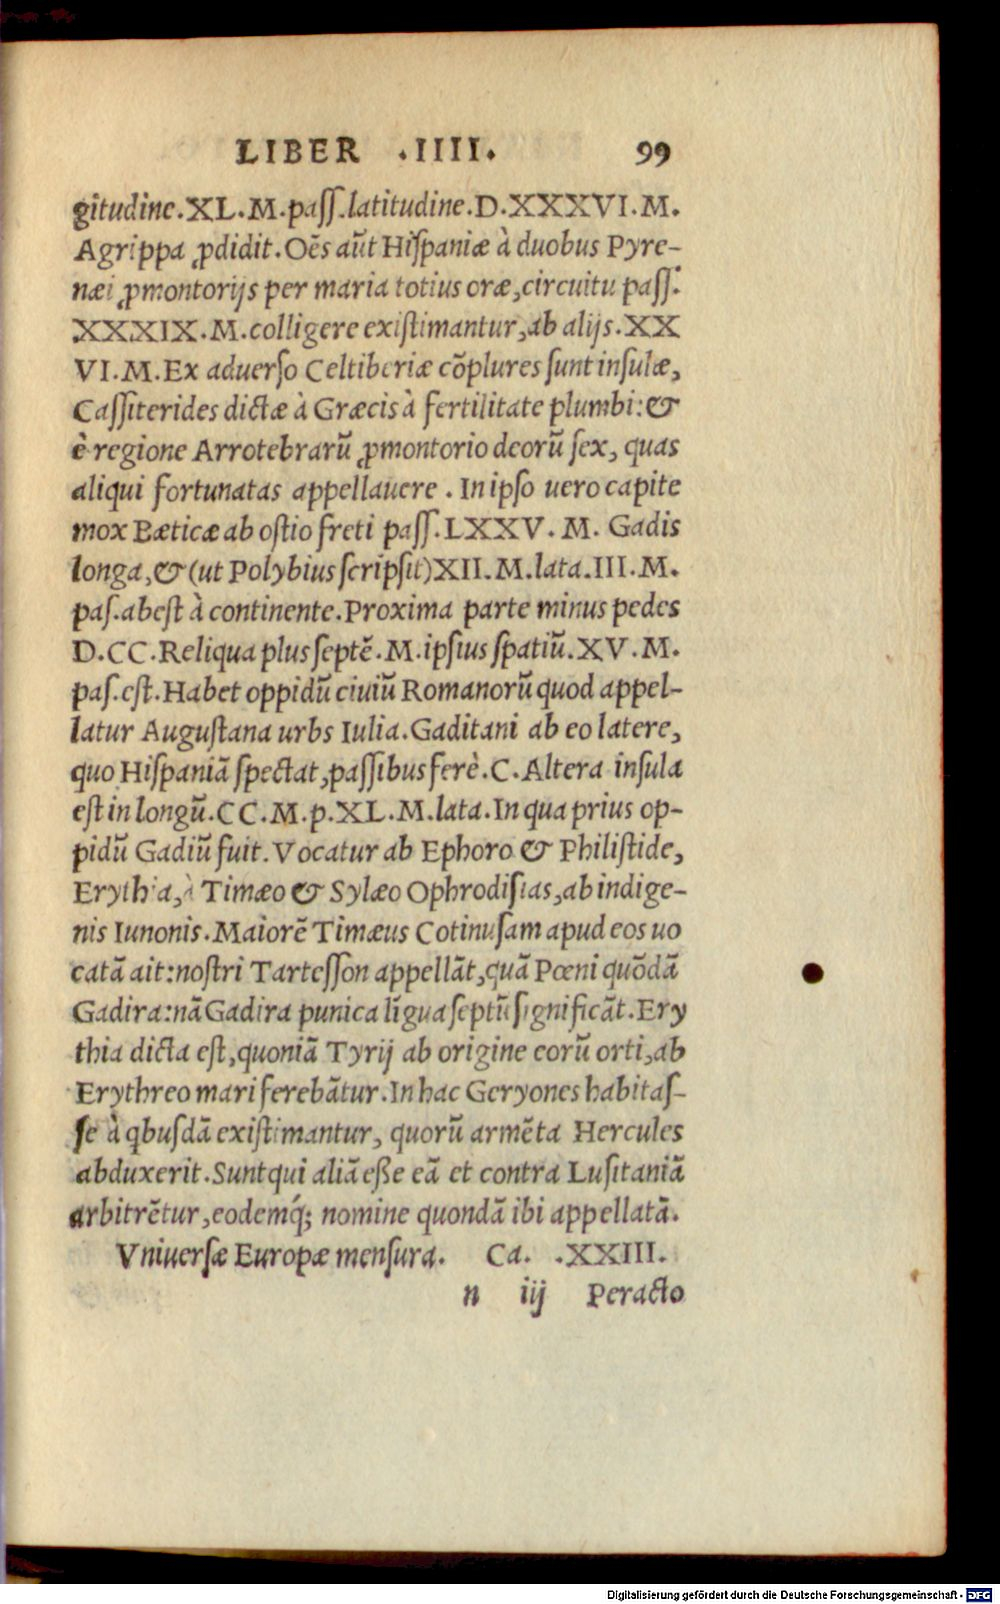 LIBER .IIII. 99
gitudine.XL.M.paſſ.latitudine.D.XXXVI.M.
Agrippa ꝓdidit.Oēs aūt Hiſpaniæ à duobus Pyre-
næi ꝓmontorijs per maria totius oræ,circuitu paſſ.
XXXIX.M.colligere exiſtimantur,ab alijs.XX
VI.M.Ex aduerſo Celtiberiæ cōplures ſunt inſulæ,
Caſſiterides dictæ à Græcis à fertilitate plumbi:&
è regione Arrotebrarū ꝓmontorio deorū ſex, quas
aliqui fortunatas appellauere . In ipſo uero capite
mox Bæticæ ab oſtio freti paſſ.LXXV.M. Gadis
longa,&(ut Polybius ſcripſit)XII.M.lata.III.M.
paſ.abeſt à continente.Proxima parte minus pedes
D.CC.Reliqua plus ſeptē.M.ipſius ſpatiū.XV.M.
paſ.eſt.Habet oppidū ciuiū Romanorū quod appel-
latur Auguſtana urbs Iulia.Gaditani ab eo latere,
quo Hiſpaniā ſpectat,paſſibus ferè.C.Altera inſula
eſt in longū.CC.M.p.XL.M.lata.In qua prius op-
pidū Gadiū fuit.Vocatur ab Ephoro & Philiſtide,
Erythia,à Timæo & Sylæo Ophrodiſias,ab indige-
nis Iunonis.Maiorē Timæus Cotinuſam apud eos uo
catā ait:noſtri Tarteſſon appellāt,quā Pœni quōdā
Gadira:nā Gadira punica līgua ſeptū ſignificāt.Ery
thia dicta eſt,quoniā Tyrij ab origine eorū orti,ab
Erythreo mari ferebātur.In hac Geryones habitaſ-
ſe à qbuſdā exiſtimantur, quorū armēta Hercules
abduxerit.Sunt qui aliā eße eā et contra Luſitaniā
arbitrētur,eodemq́; nomine quondā ibi appellatā.
Vniuerſæ Europæ menſura. Ca. .XXIII.
n iij Peracto
Digitalisierung gefördert durch die Deutsche Forschungsgemeinschaft - DFG